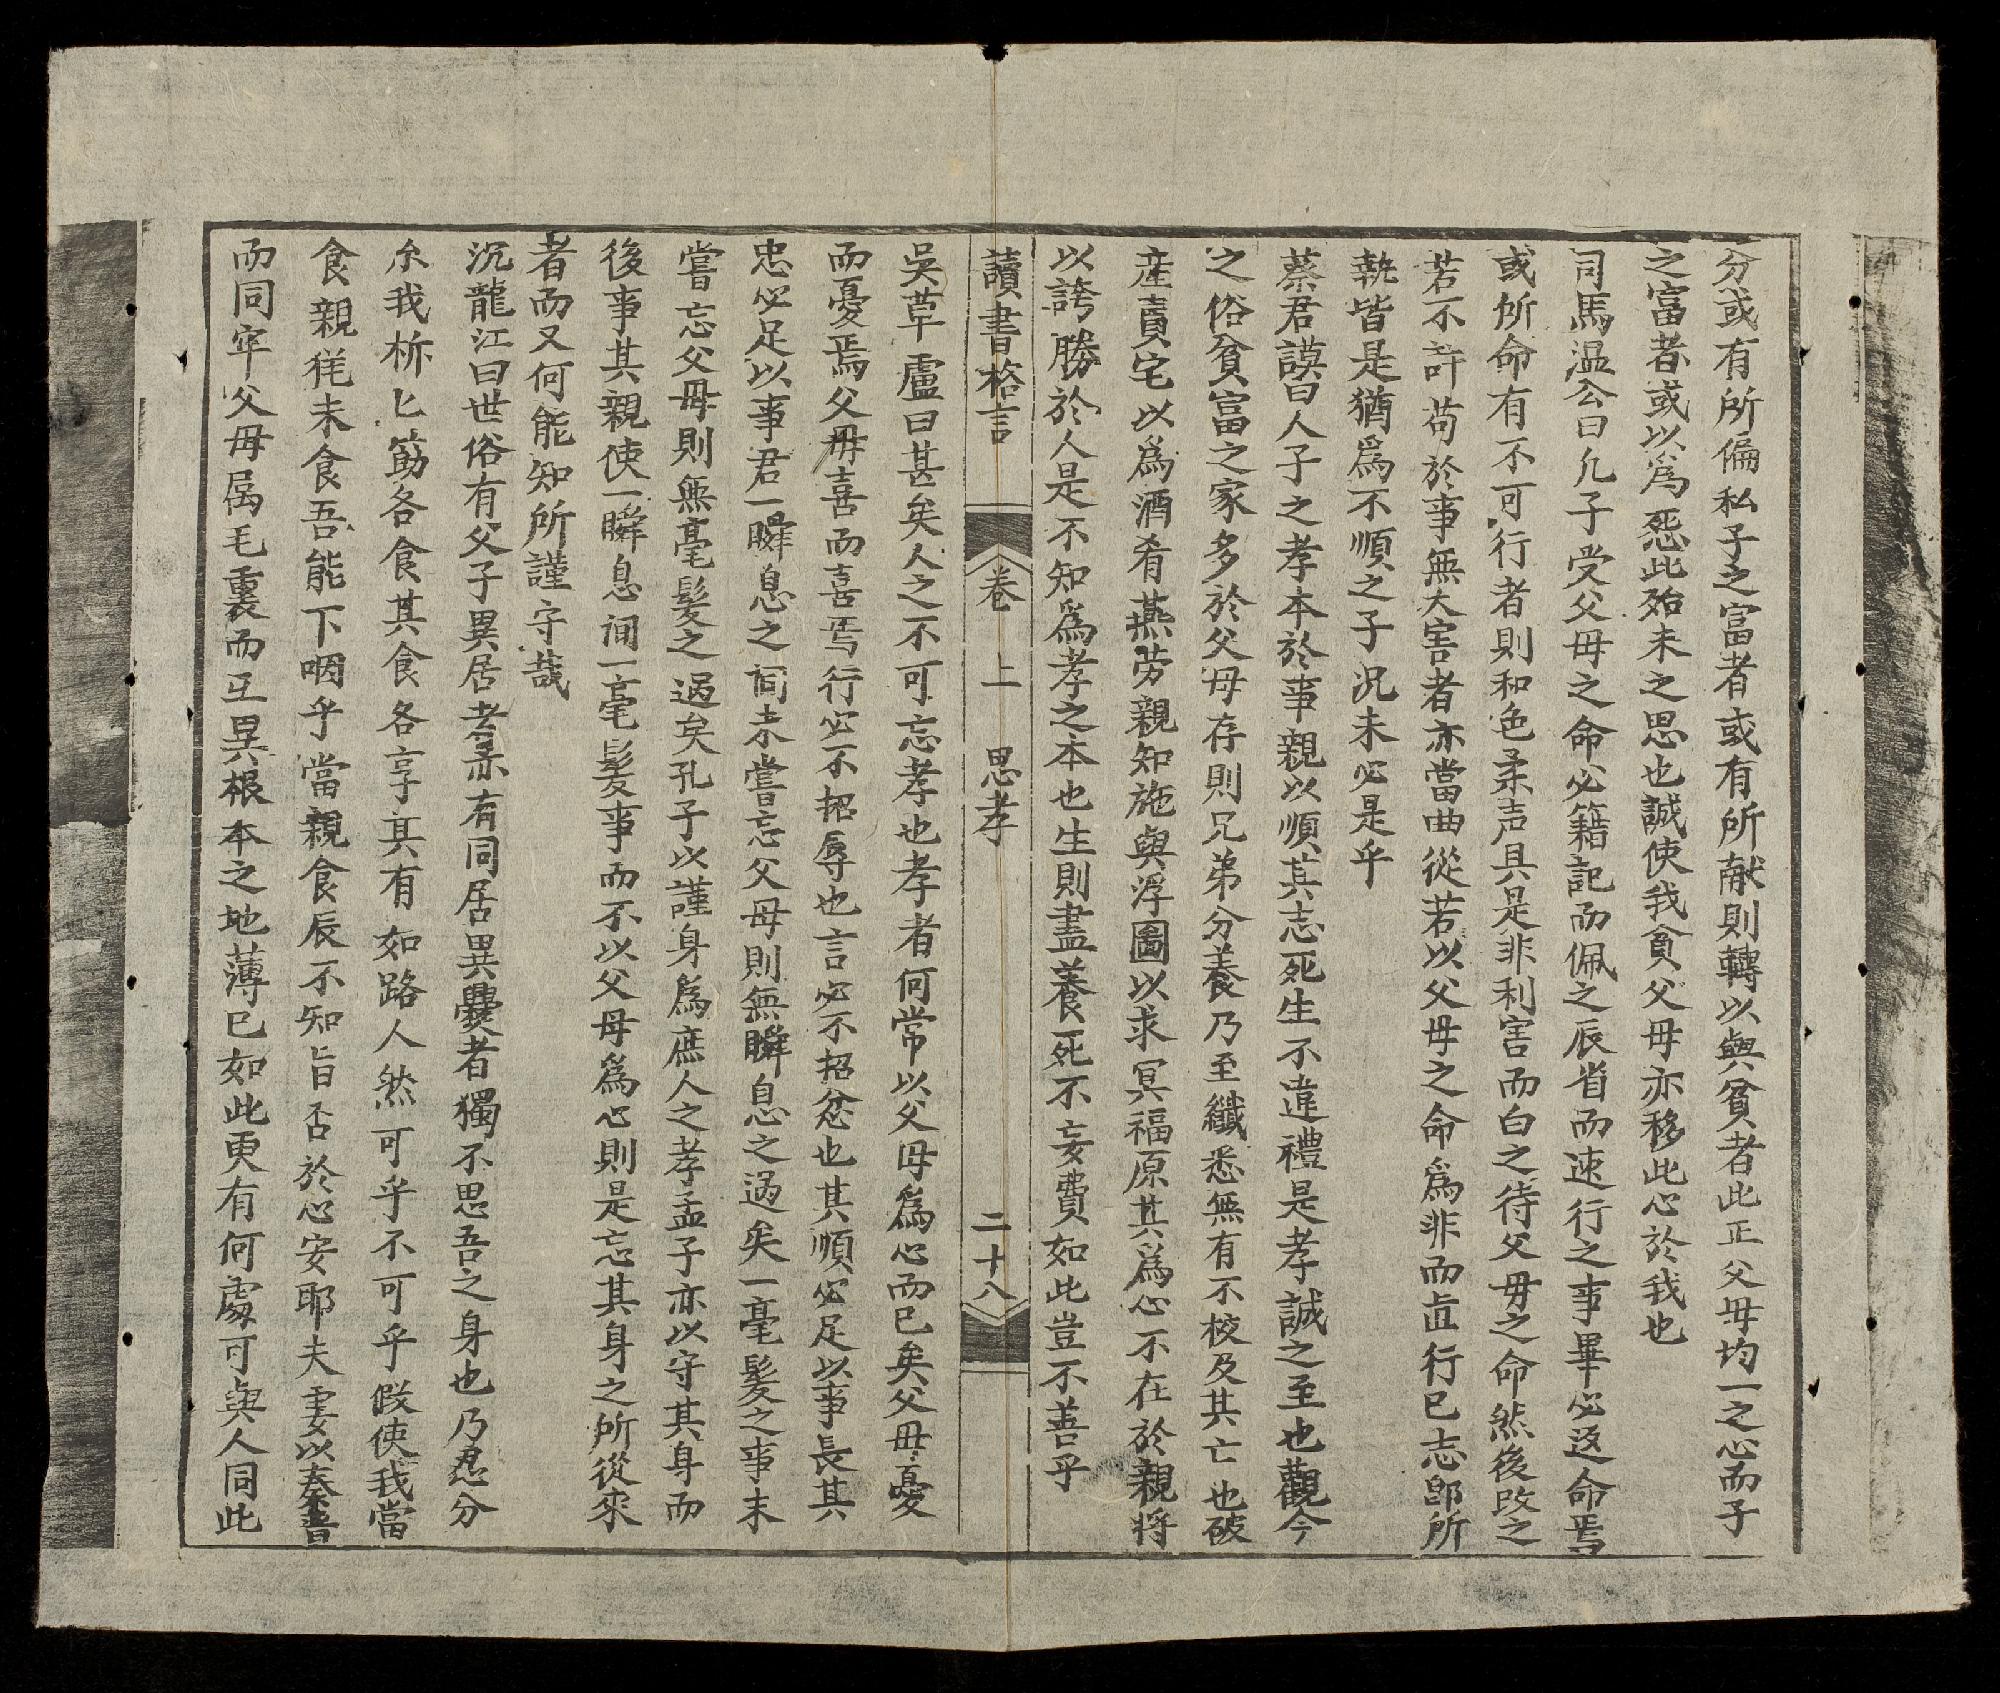 分或有所偏私子之富者或有所献則轉以與貧者此正父母均一之心而子
之富者或以爲怨此殆未之思也誠使我貧父母亦移此心於我也
司馬温公曰凢子受父母之命必籍記而佩之辰省而速行之事畢必返命焉
或所命有不可行者則和色柔声具是非利害而白之待父母之命然後改之
若不許苟於事無大害者亦當曲從若以父母之命爲非而直行己志卽所
執皆是猶爲不順之子况未必是乎
蔡君謨曰人子之孝本於事親以順其志死生不違禮是孝誠之至也觀今
之俗貧富之家多於父母存則兄弟分養乃至纖悉無有不校及其亡也破
産賣宅以爲酒肴燕劳親知施與浮圖以求冥福原其爲心不在於親将
以誇勝於人是不知爲孝之本也生則盡養死不妄費如此豈不善乎
讀書格言 卷上 思孝 二十八
吳草盧曰甚矣人之不可忘孝也孝者何常以父母爲心而已矣父母憂
而憂焉父母喜而喜焉行必不招辱也言必不招忿也其順必足以事長其
忠必足以事君一瞬息之间未嘗忘父母則無瞬息之過矣一毫髪之事未
嘗忘父母則無毫髪之過矣孔子以謹身爲庶人之孝孟子亦以守其身而
後事其親使一瞬息间一毫髪事而不以父母爲心則是忘其身之所從來
者而又何能知所謹守哉
沉龍江曰世俗有父子異居者亦有同居異爨者獨不思吾之身也乃君分
尒我柝匕筯各食其食各享其有如路人然可乎不可乎假使我當
食親徃未食吾能下咽乎當親食辰不知旨否於心安耶夫妻以奏書
而同牢父母属毛裏而互異根本之地薄已如此更有何處可與人同此